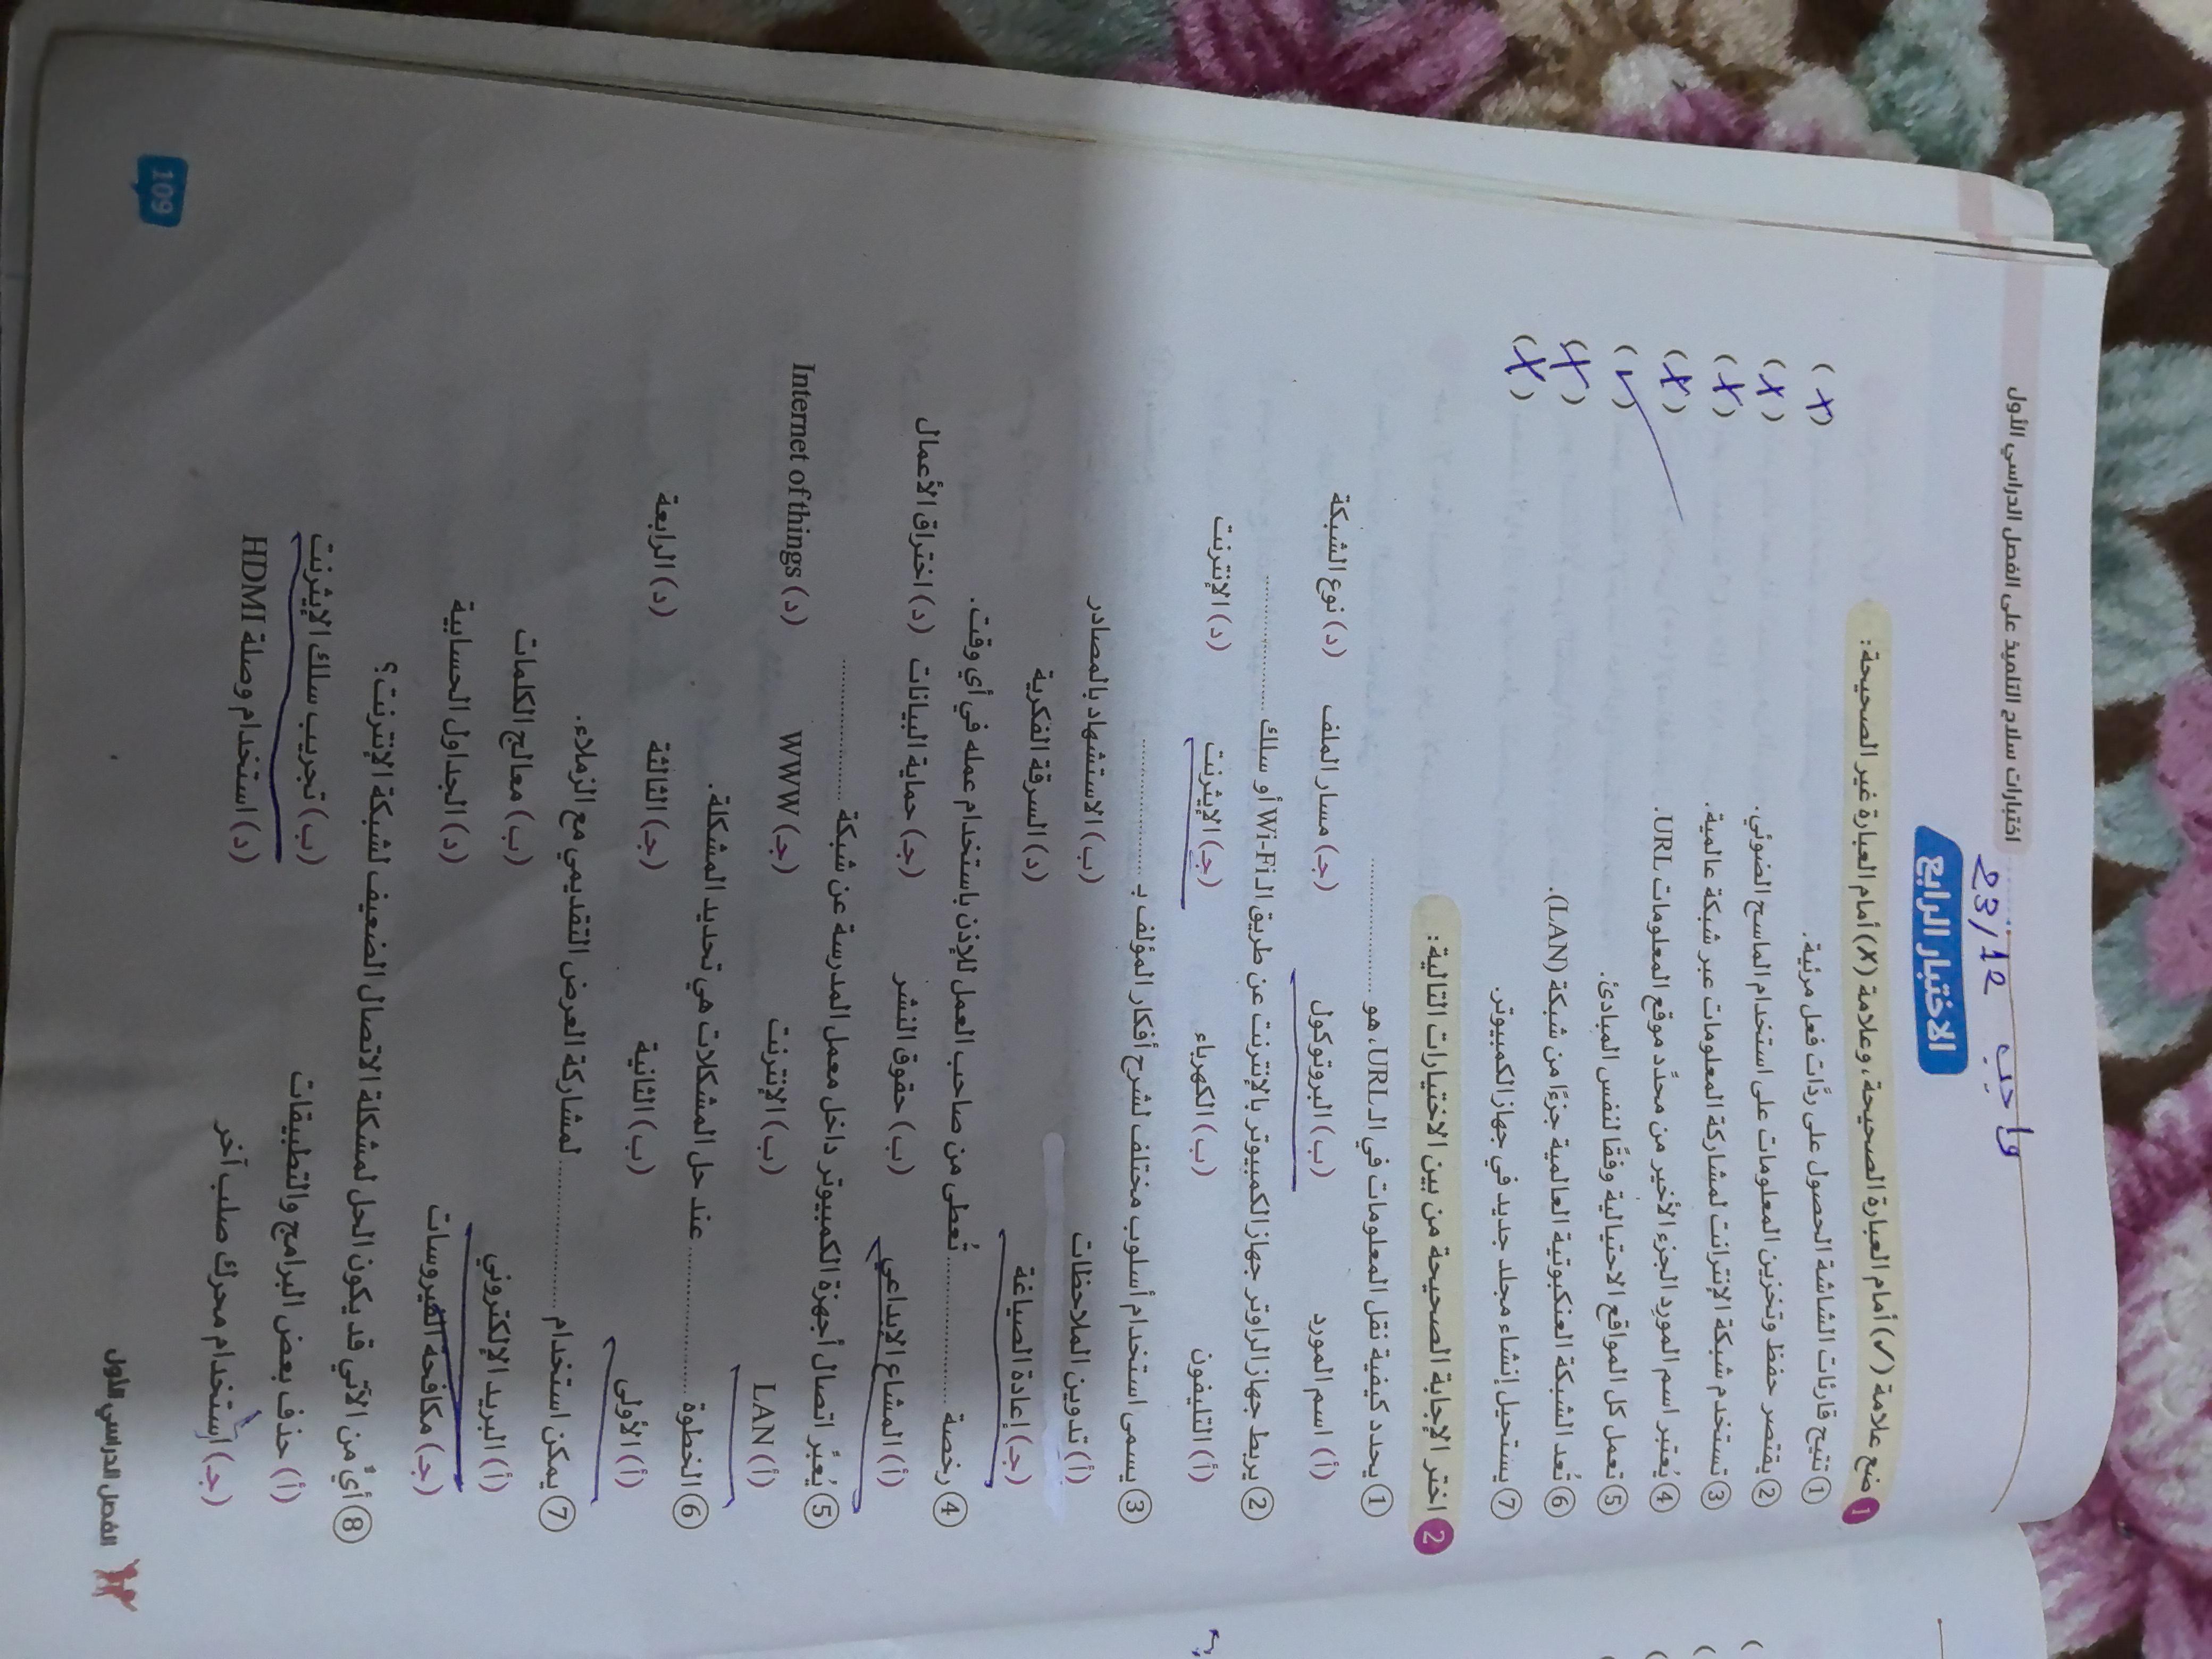 اختبارات سلاح التلميذ على الفصل الدراسي الأول
واجب 23/12
الاختبار الرابع
1 ضع علامة (✓) أمام العبارة الصحيحة، وعلامة (✗) أمام العبارة غير الصحيحة:
① تتيح قارئات الشاشة الحصول على ردَّات فعل مرئية. (✗)
② يقتصر حفظ وتخزين المعلومات على استخدام الماسح الضوئي. (✗)
③ تستخدم شبكة الإنترانت لمشاركة المعلومات عبر شبكة عالمية. (✗)
④ يُعتبر اسم المورد الجزء الأخير من محدِّد موقع المعلومات URL. (✗)
⑤ تعمل كل المواقع الاحتيالية وفقًا لنفس المبادئ. (✓)
⑥ تُعد الشبكة العنكبوتية العالمية جزءًا من شبكة (LAN). (✗)
⑦ يستحيل إنشاء مجلد جديد في جهاز الكمبيوتر. (✗)
2 اختر الإجابة الصحيحة من بين الاختيارات التالية:
① يحدد كيفية نقل المعلومات في الـ URL، هو ..............
(أ) اسم المورد (ب) البروتوكول (جـ) مسار الملف (د) نوع الشبكة
② يربط جهاز الراوتر جهاز الكمبيوتر بالإنترنت عن طريق الـ Wi-Fi أو سلك ..............
(أ) التليفون (ب) الكهرباء (جـ) الإيثرنت (د) الإنترنت
③ يسمى استخدام أسلوب مختلف لشرح أفكار المؤلف بـ ..............
(أ) تدوين الملاحظات (ب) الاستشهاد بالمصادر
(جـ) إعادة الصياغة (د) السرقة الفكرية
④ رخصة .............. تُعطى من صاحب العمل للإذن باستخدام عمله في أي وقت.
(أ) المشاع الإبداعي (ب) حقوق النشر (جـ) حماية البيانات (د) اختراق الأعمال
⑤ يُعبَّر اتصال أجهزة الكمبيوتر داخل معمل المدرسة عن شبكة ..............
(أ) LAN (ب) الإنترنت (جـ) WWW (د) Internet of things
⑥ الخطوة .............. عند حل المشكلات هي تحديد المشكلة.
(أ) الأولى (ب) الثانية (جـ) الثالثة (د) الرابعة
⑦ يمكن استخدام .............. لمشاركة العرض التقديمي مع الزملاء.
(أ) البريد الإلكتروني (ب) معالج الكلمات
(جـ) مكافحة الفيروسات (د) الجداول الحسابية
⑧ أيٌّ من الآتي قد يكون الحل لمشكلة الاتصال الضعيف لشبكة الإنترنت؟
(أ) حذف بعض البرامج والتطبيقات (ب) تجريب سلك الإيثرنت
(جـ) استخدام محرك صلب آخر (د) استخدام وصلة HDMI
الفصل الدراسي الأول
109